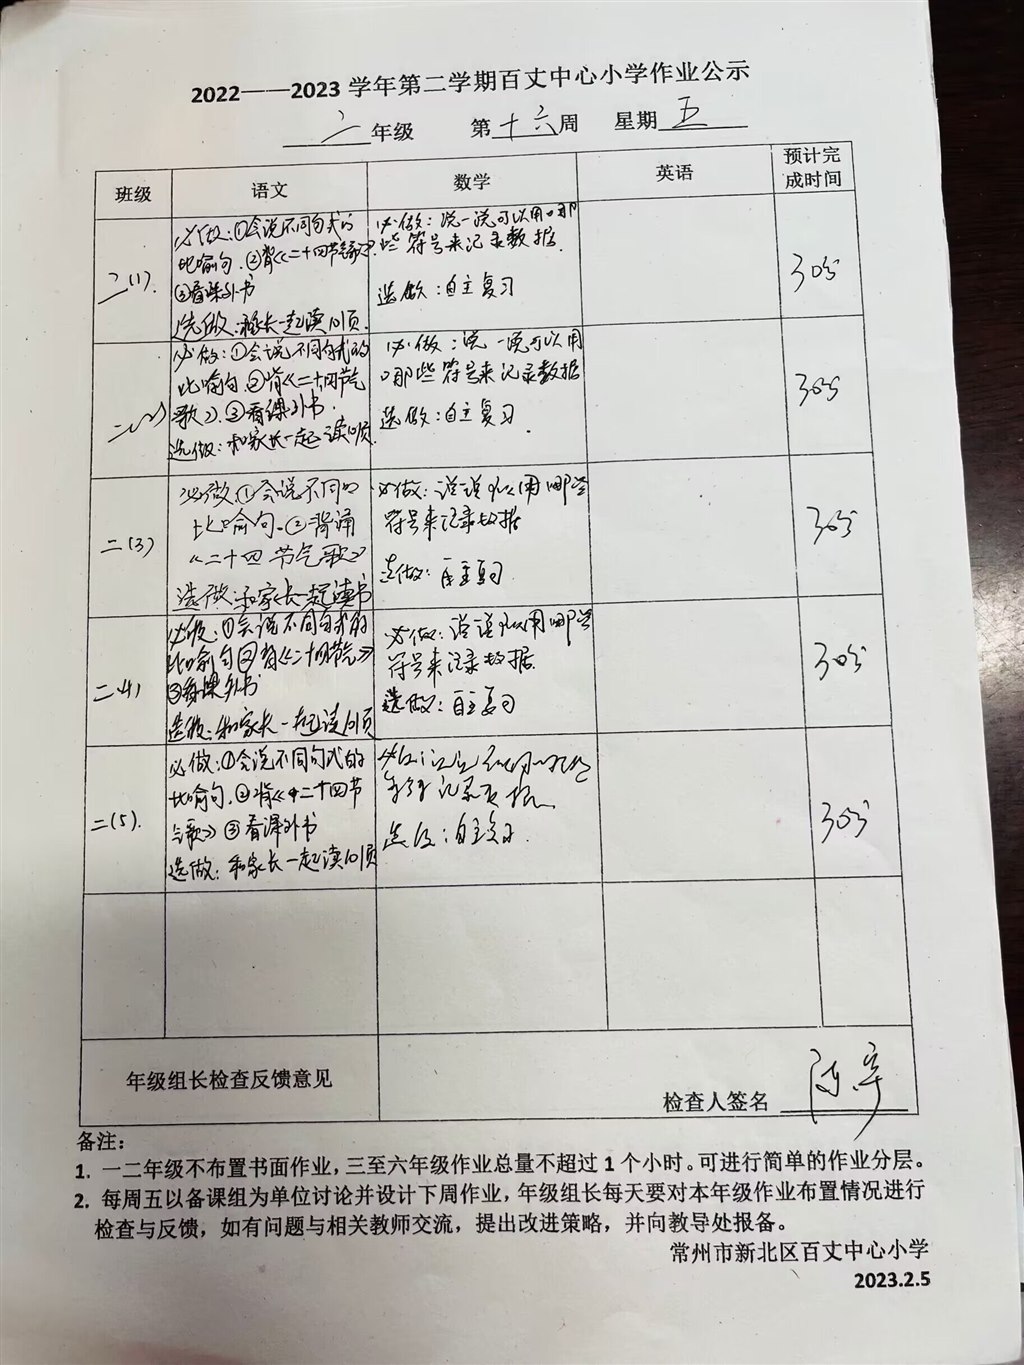 2022——2023 学年第二学期百丈中心小学作业公示
二 年级 第 十六 周 星期 五
班级 语文 数学 英语 预计完成时间
二(1)
必做:①会说不同句式的
比喻句.②背《二十四节气歌》.
③看课外书
选做:和家长一起读101页.
必做:说一说可以用哪
些符号来记录数据.
选做:自主复习
30分
二(2)
必做:①会说不同句式的
比喻句.②背《二十四节气
歌》.③看课外书.
选做:和家长一起读101页.
必做:说一说可以用
哪些符号来记录数据
选做:自主复习.
30分
二(3)
必做①会说不同的
比喻句.②背诵
《二十四节气歌》
选做:和家长一起读书
必做:说说可以用哪些
符号来记录数据
选做:自主复习
30分
二(4)
必做:①会说不同句式的
比喻句②背《二十四节气》
③看课外书
选做:和家长一起读101页
必做:说说可以用哪些
符号来记录数据.
选做:自主复习
30分
二(5).
必做:①会说不同句式的
比喻句.②背《二十四节
气歌》③看课外书
选做:和家长一起读101页
符号记录数据.
选做:自主复习.
30分
年级组长检查反馈意见
检查人签名
备注:
1. 一二年级不布置书面作业,三至六年级作业总量不超过 1 个小时。可进行简单的作业分层。
2. 每周五以备课组为单位讨论并设计下周作业,年级组长每天要对本年级作业布置情况进行
检查与反馈,如有问题与相关教师交流,提出改进策略,并向教导处报备。
常州市新北区百丈中心小学
2023.2.5